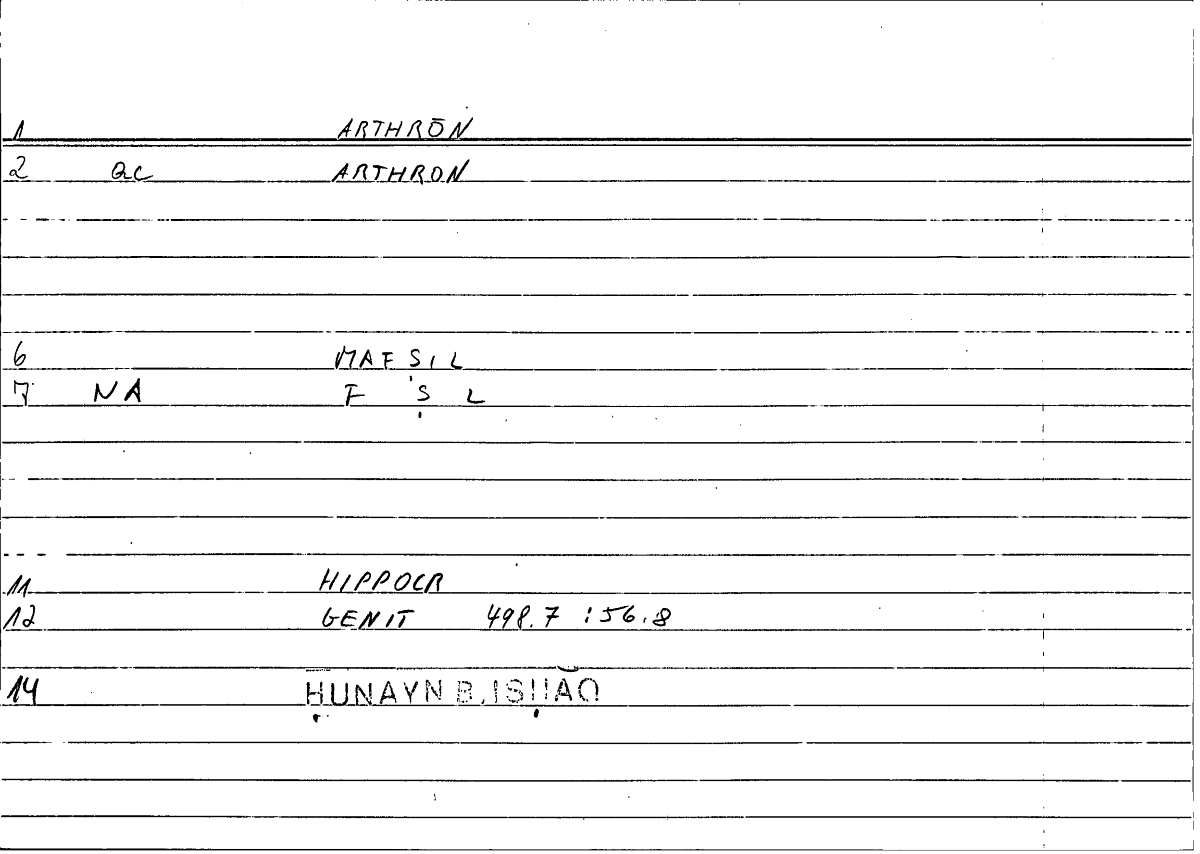 1 ARTHRŌN
2 QC ARTHRON
6 MAFṢIL
7 NA F Ṣ L
11 HIPPOCR
12 GENIT 498.7 :56.8
14 ḤUNAYN B. ISḤĀQ